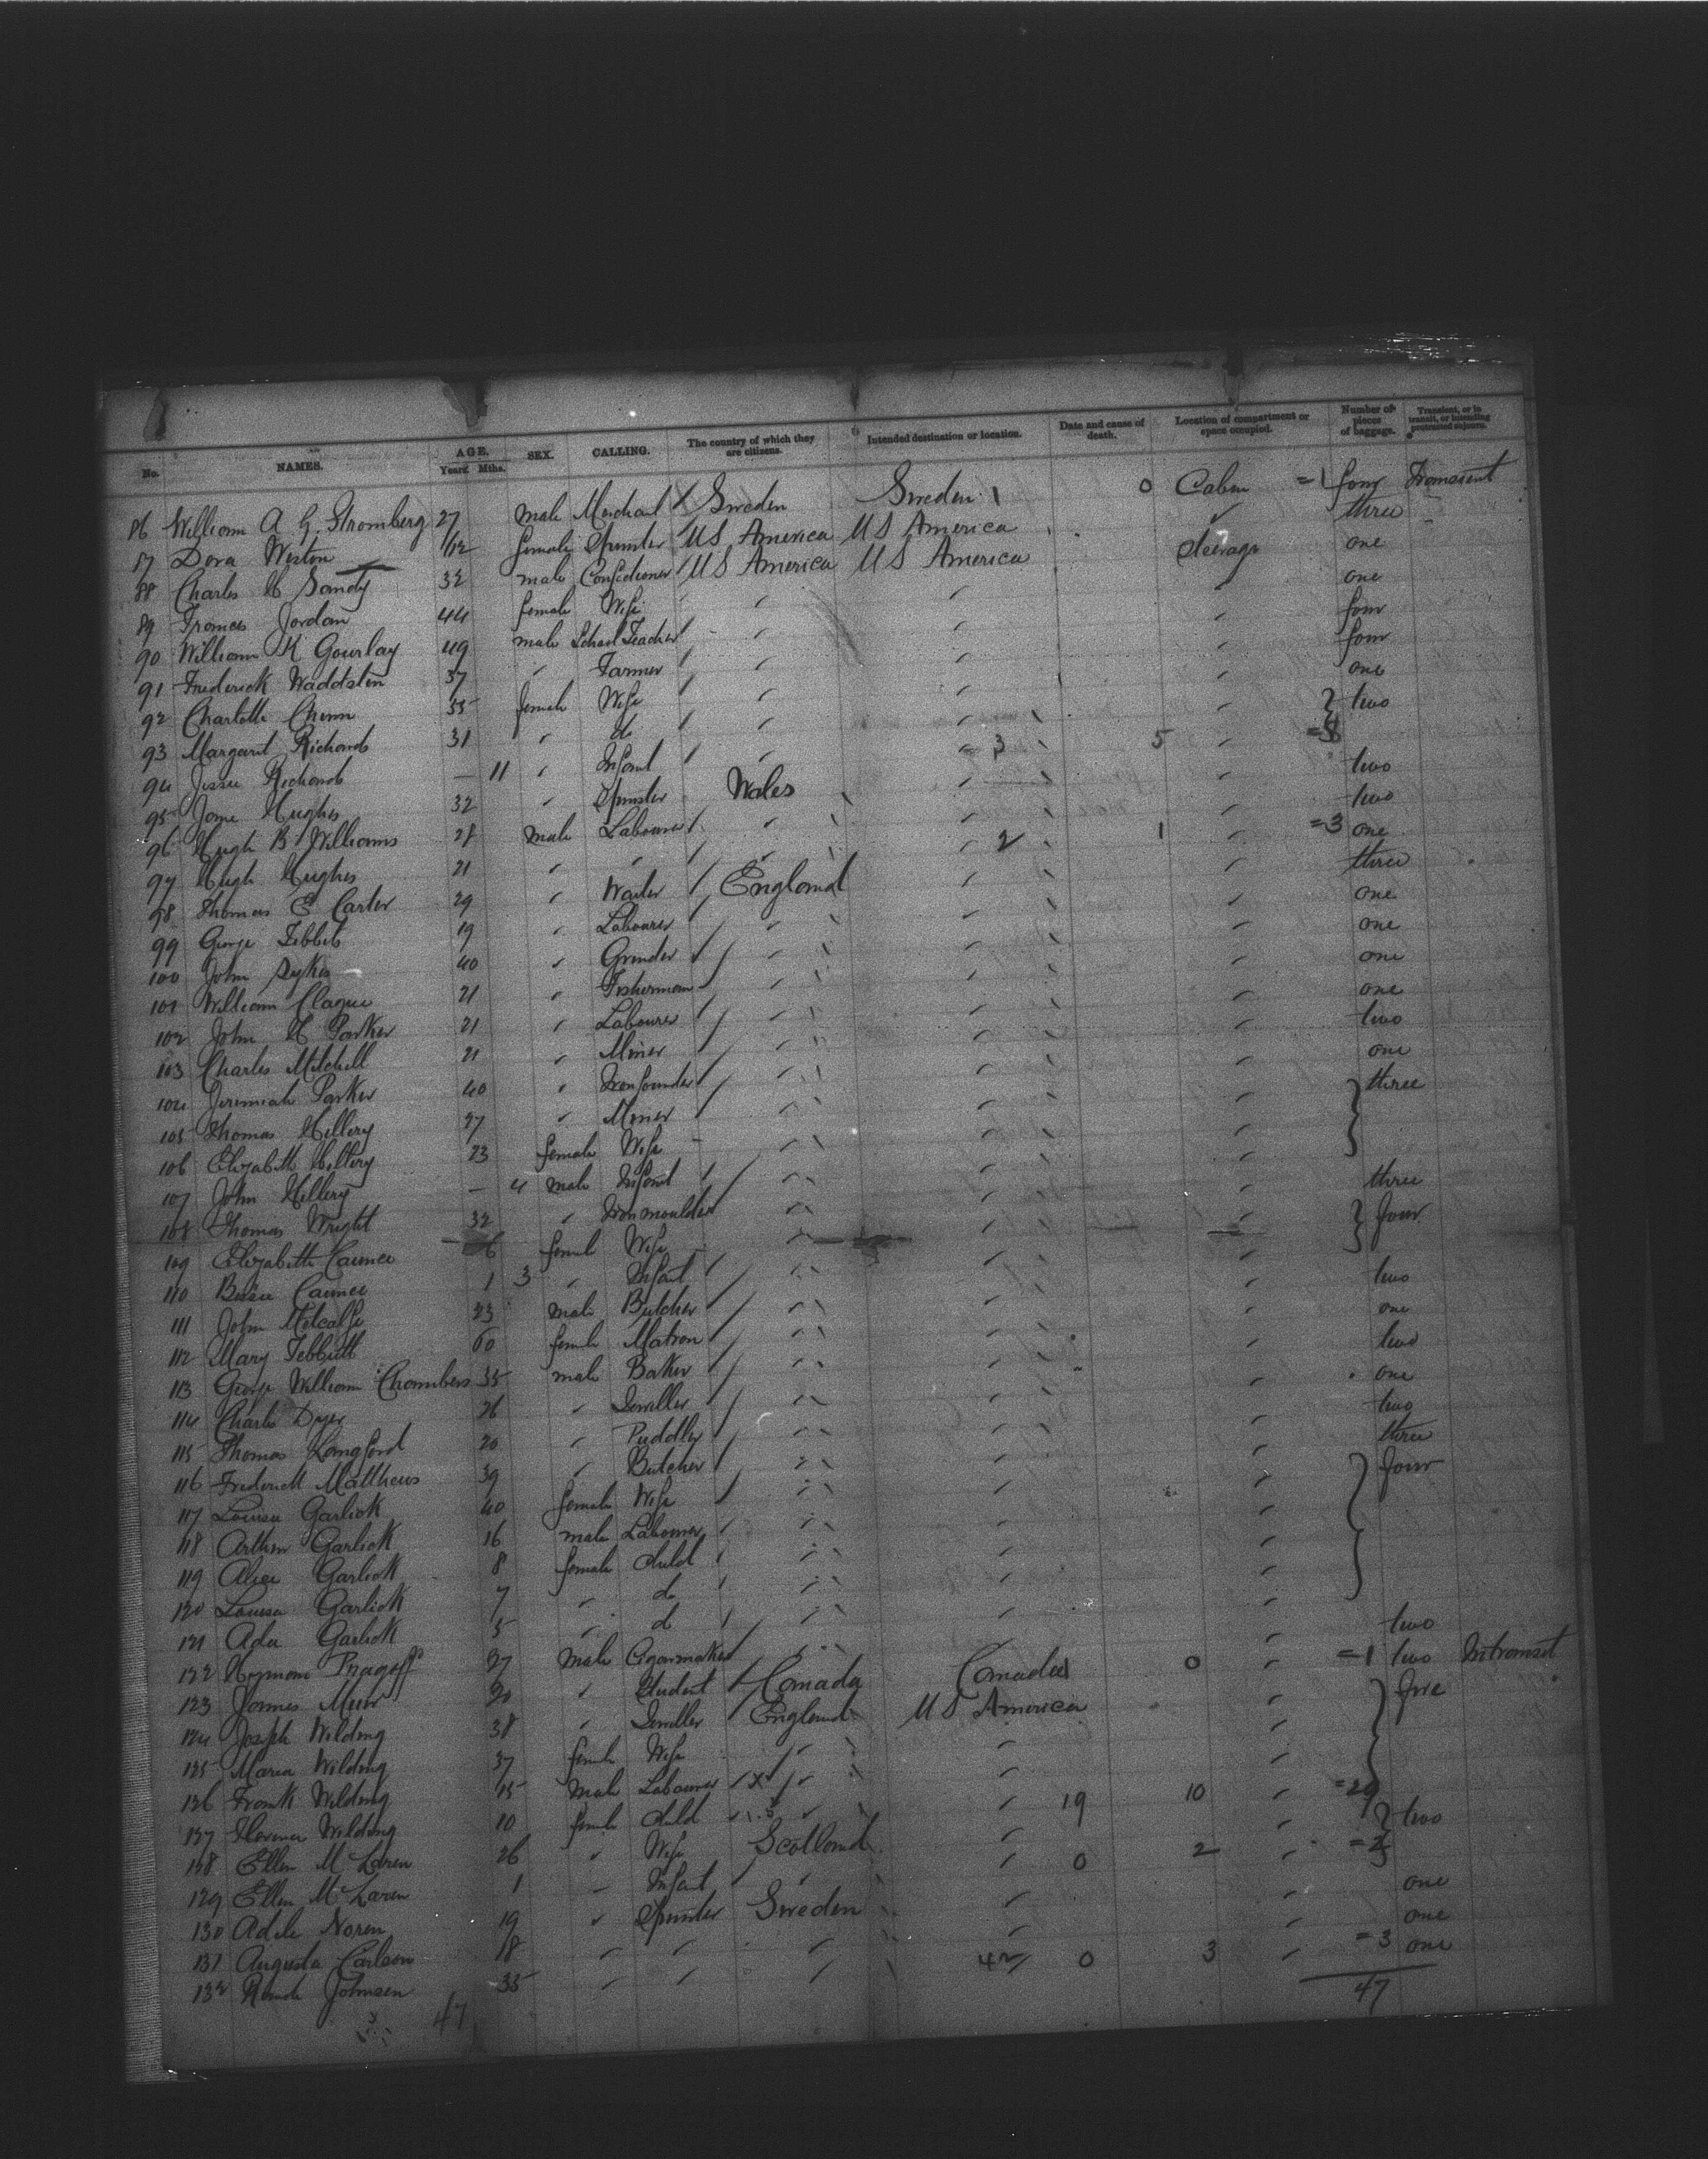 No. NAMES. AGE. Years Mths. SEX. CALLING. The country of which they are citizens. Intended destination or location. Date and cause of death. Location of compartment or space occupied. Number of pieces of baggage. Transient, or in transit, or intending protracted sojourn.
86 William A G. Stromberg 27 male Merchant Sweden Sweden 0 Cabin =1 four Transient
87 Dora Weston female Spinster US America US America three
88 Charles H Sandy 32 male Confectioner US America US America Steerage one
89 Frances Jordan 44 female Wife one
90 William K Gourlay 49 male School Teacher four
91 Frederick 37 Farmer four
92 Charlotte Chinn 35 female Wife one
93 Margaret Richards 31 " do two
94 Jessie Richards — 11 " Infant 3 5 =8
95 Jane Hughes 32 " Spinster Wales two
96 Hugh B Williams 28 Male Labourer two
97 Hugh Hughes 21 " " 2 1 =3 one
98 Thomas E Carter 29 " Waiter England three
99 George Tebbit 19 " Labourer one
100 John Sykes 40 " Grinder one
101 William Clague 21 " Fisherman one
102 John H Parker 21 " Labourer one
103 Charles Mitchell 21 " Miner two
104 Jeremiah Parker 40 " Ironfounder one
105 Thomas Hillery 27 " Miner three
106 Elizabeth Hillery 23 female Wife
107 John Hillery — 4 male Infant
108 Thomas Wright 32 " Iron moulder three
109 Elizabeth Caunce female Wife four
110 Caunce 1 3 " Infant
111 John Metcalfe 23 male Butcher two
112 Mary Tebbutt 60 female Matron one
113 George William Chambers 35 male Baker two
114 Charles Dyer 26 " Jeweller one
115 Thomas Langford 20 " Puddler two
116 Frederick Matthews 39 " Butcher three
117 Louisa Garlick 40 female Wife four
118 Arthur Garlick 16 male Labourer
119 Alice Garlick 8 female Child
120 Louisa Garlick 7 " do
121 Ada Garlick 5 " do
122 Hyman 27 Male Cigarmaker two
123 James Muir 20 " Student Canada Canada 0 =1 two Intransit
124 Joseph Wilding 38 " Jeweller England US America five
125 Maria Wilding 37 female Wife
126 Frank Wilding 15 Male Labourer
127 Florence Wilding 10 female Child 19 10 =29
128 Ellen McLaren 26 " Wife Scotland two
129 Ellen McLaren 1 " Infant 0 2 =2
130 Adele Noren 19 " Spinster Sweden one
131 Augusta Carlson 18 " " " one
132 Johnsen 35 " " " 42 0 3 =3 one
47 47